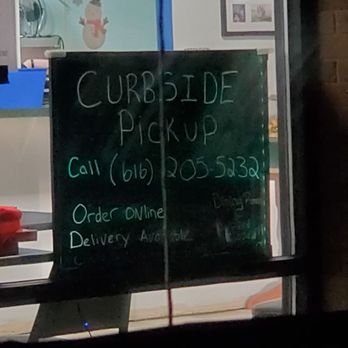 CURBSIDE
PICKUP
Call (616) 205-5232
Order ONline
Delivery Available
Dining